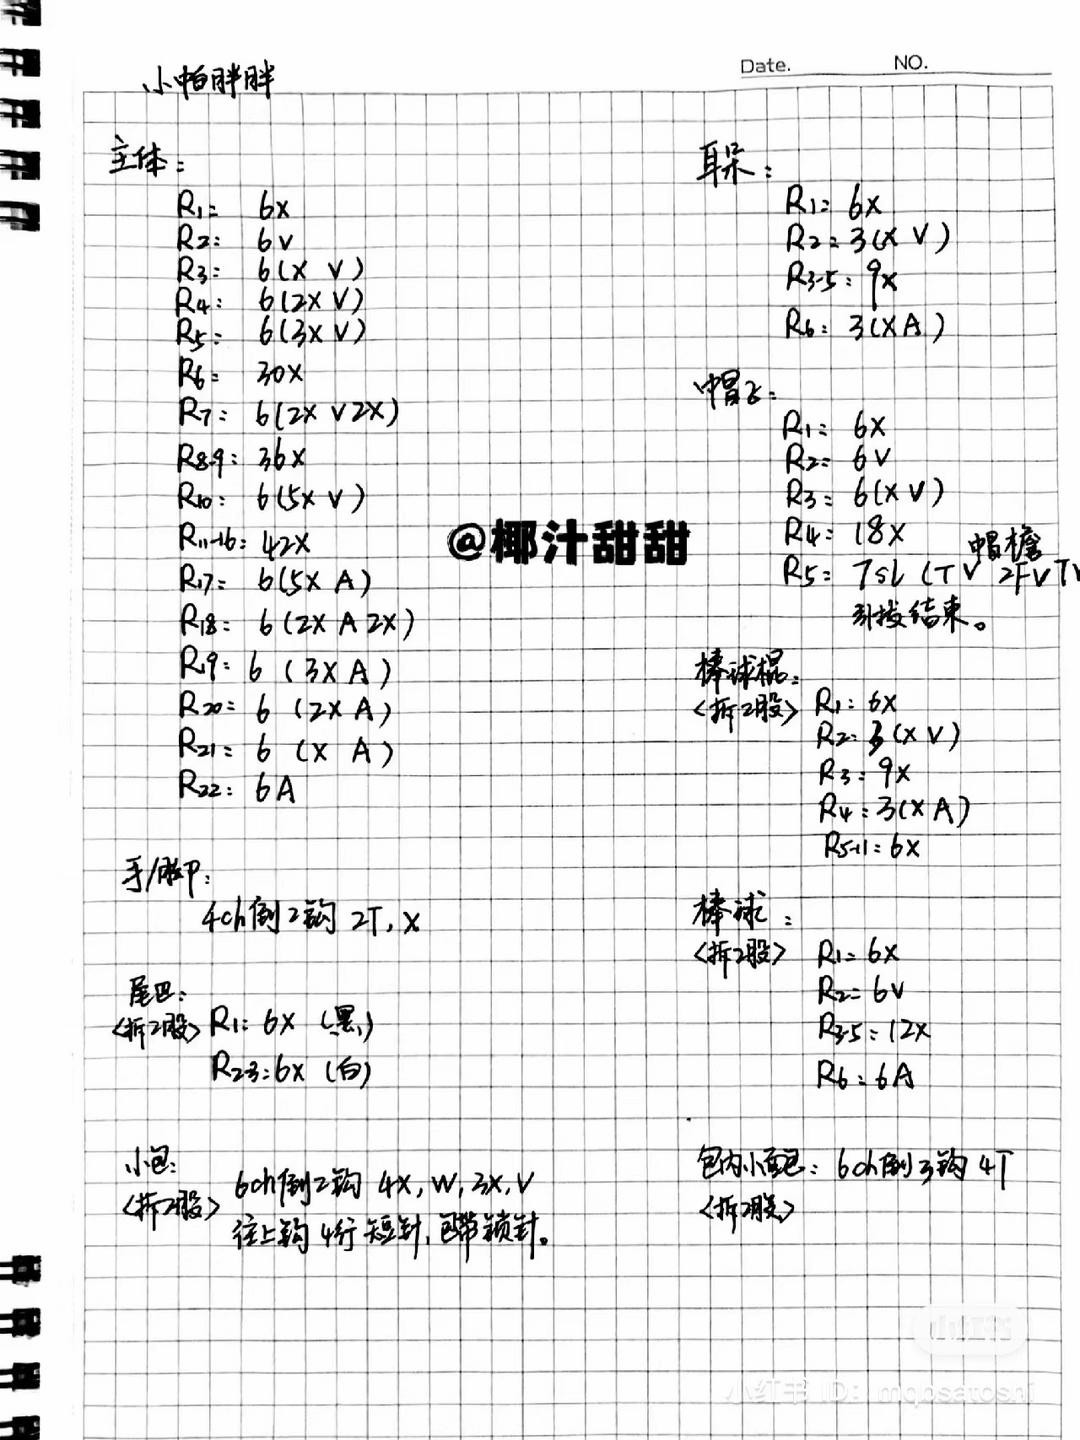 Date. NO.
小帕胖胖
主体:
R1: 6X
R2: 6V
R3: 6(X V)
R4: 6(2X V)
R5: 6(3X V)
R6: 30X
R7: 6(2X V 2X)
R8-9: 36X
R10: 6(5X V)
R11-16: 42X
R17: 6(5X A)
R18: 6(2X A 2X)
R19: 6 (3X A)
R20: 6 (2X A)
R21: 6 (X A)
R22: 6A
手/脚:
4ch倒2钩 2T, X
尾巴:
<拆2股> R1: 6X (黑)
R2-3: 6X (白)
小包:
<拆2股> 6ch倒2钩 4X, W, 3X, V
往上钩4行短针, 包带锁针。
耳朵:
R1: 6X
R2: 3(X V)
R3-5: 9X
R6: 3(X A)
帽子:
R1: 6X
R2: 6V
R3: 6(X V)
R4: 18X
帽檐
R5: 7sl (TV 2FV TV
引拔结束。
棒球棍:
<拆2股> R1: 6X
R2: 3(X V)
R3: 9X
R4: 3(X A)
R5-11: 6X
棒球:
<拆2股> R1: 6X
R2: 6V
R3-5: 12X
R6: 6A
包内小面包: 6ch倒3钩 4T
<拆2股>
@椰汁甜甜
小红书
小红书 ID: mqpsatoshi